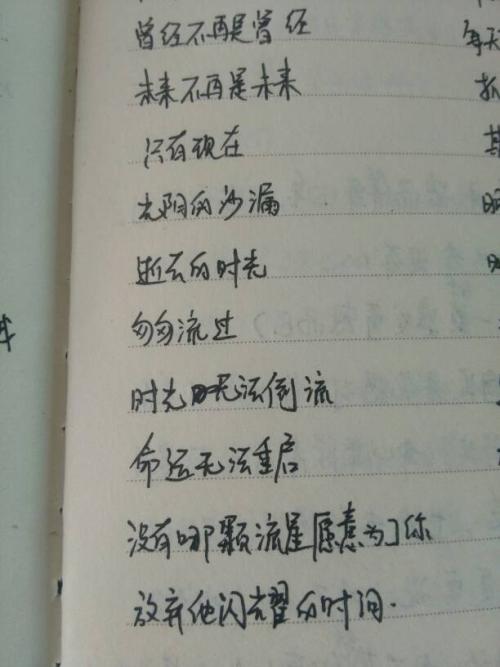 曾经不再是曾经
未来不再是未来
只有现在
光阴的沙漏
逝去的时光
匆匆流过
时光无法倒流
命运无法重启
没有哪颗流星愿意为了你
放弃他闪耀的时间.
每天